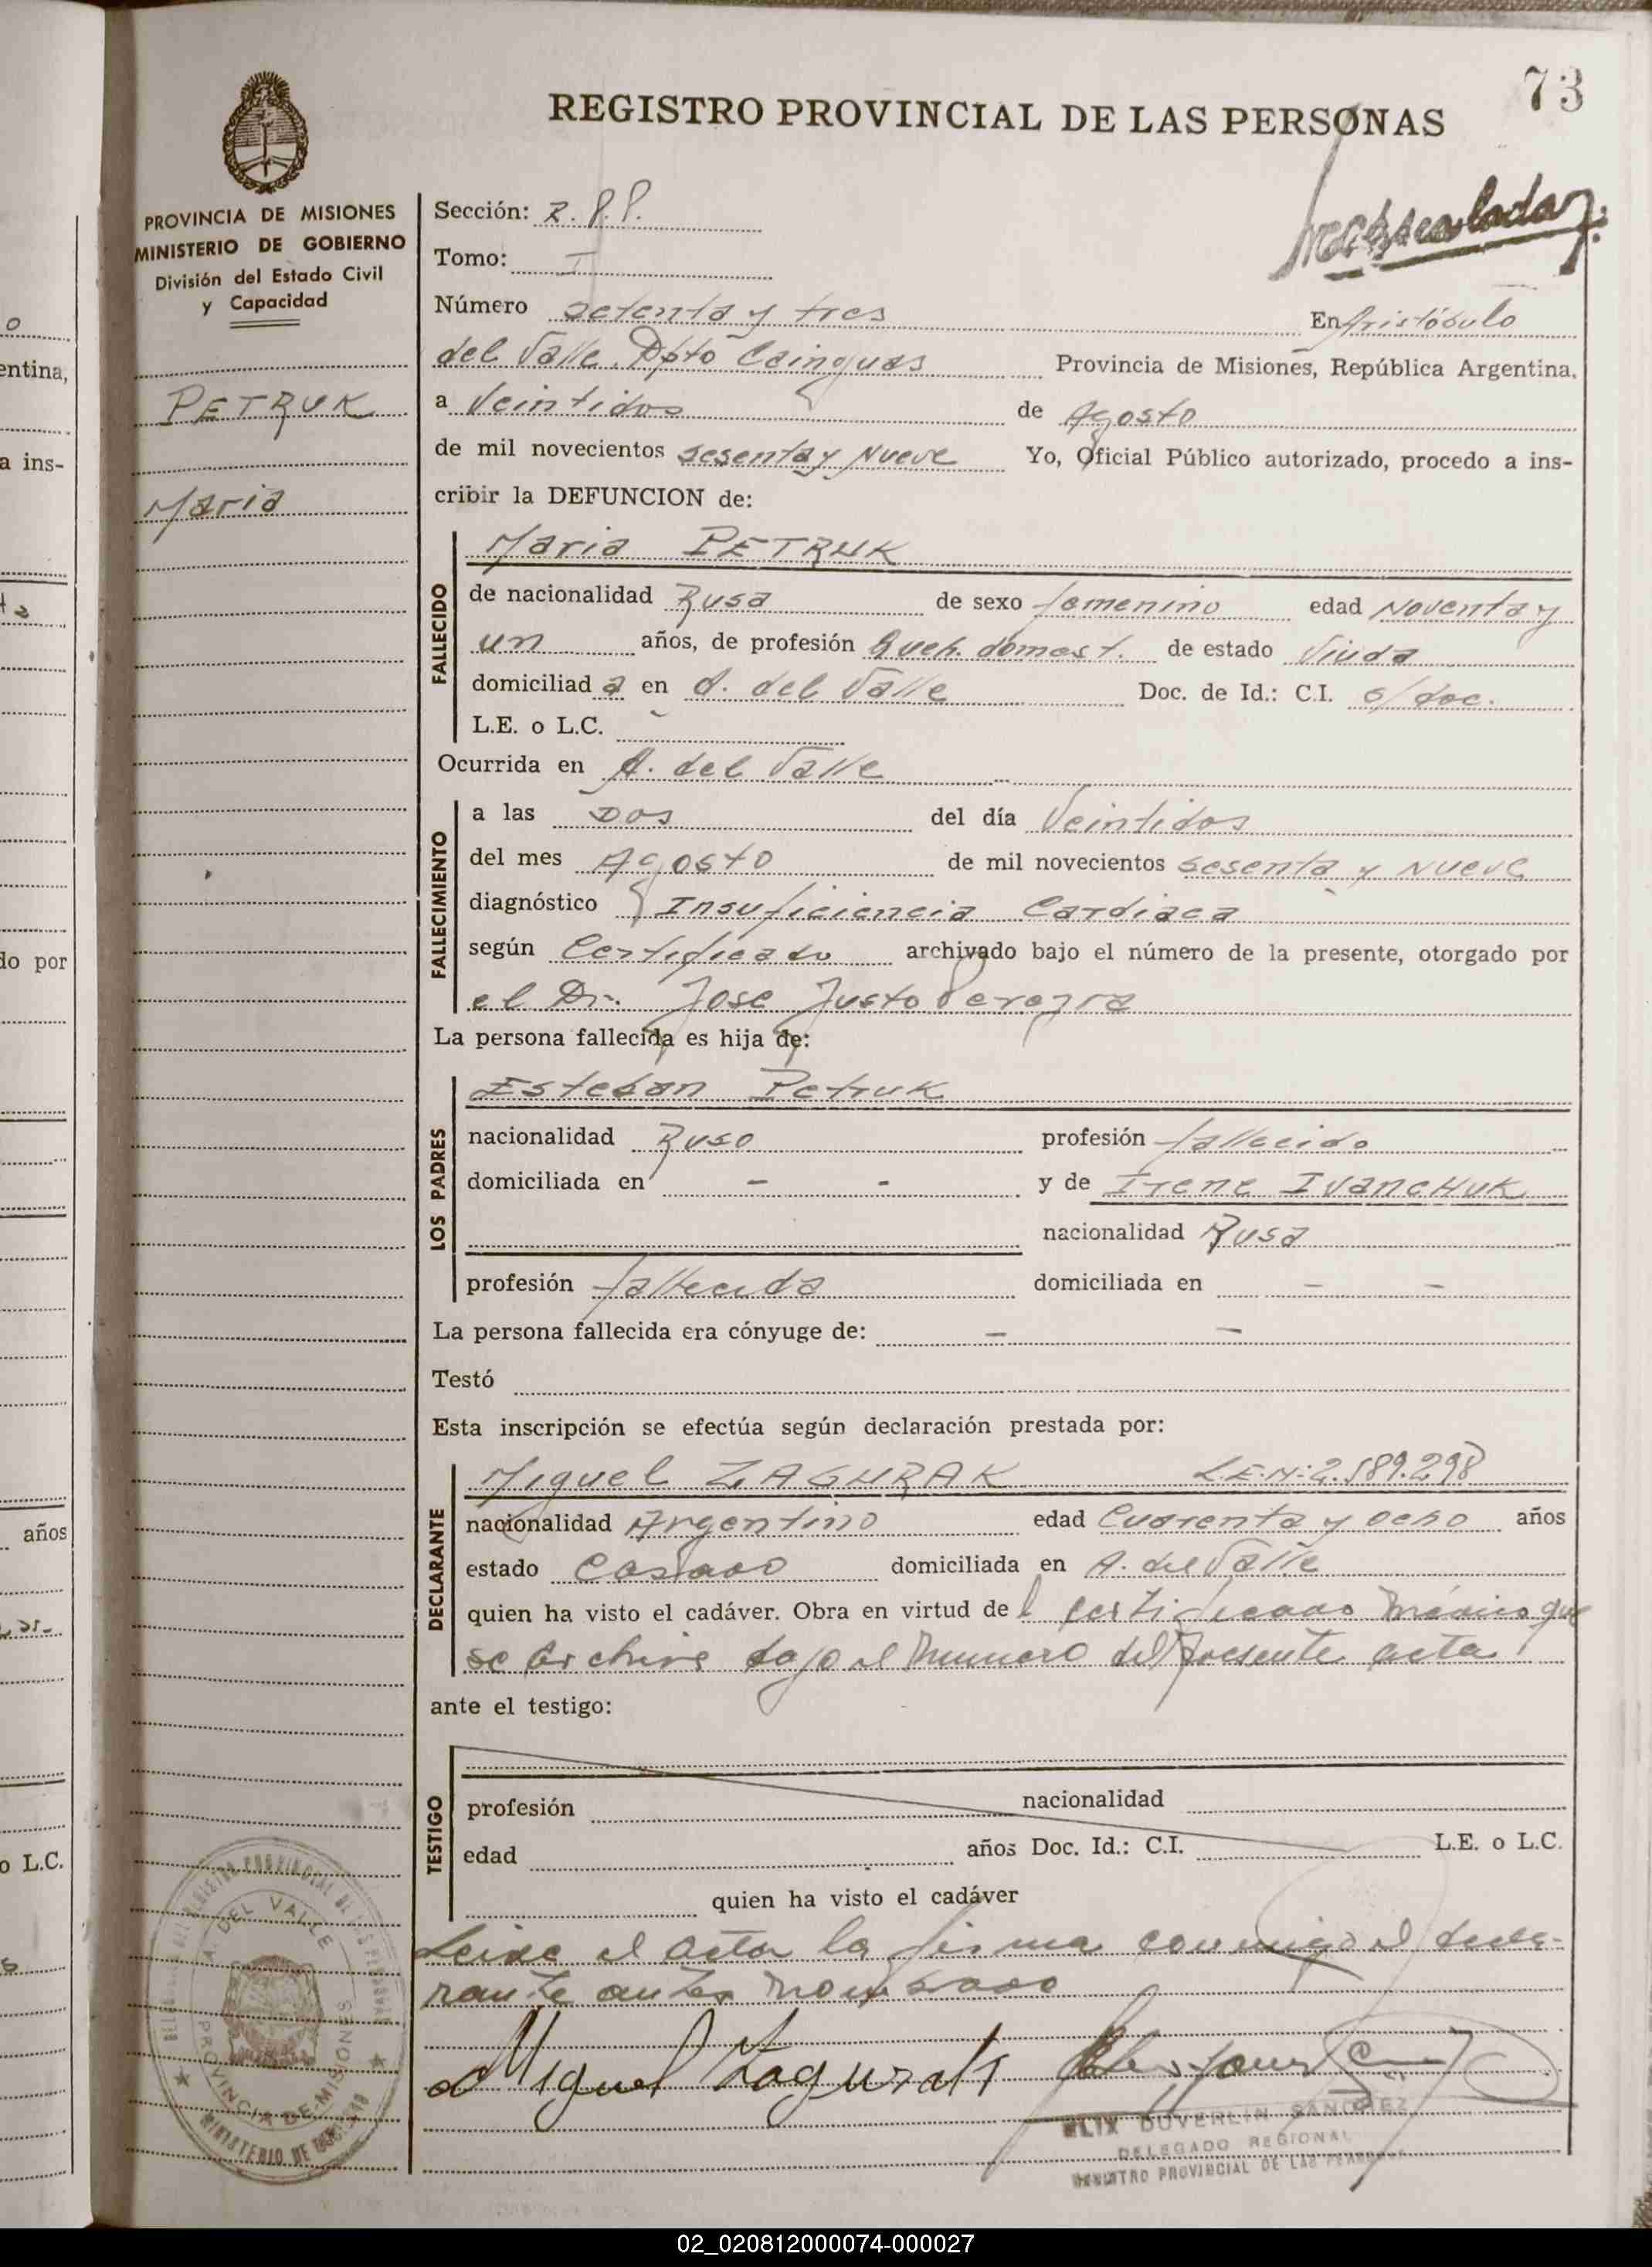 73
REGISTRO PROVINCIAL DE LAS PERSONAS
PROVINCIA DE MISIONES
MINISTERIO DE GOBIERNO
División del Estado Civil
y Capacidad
PETRUK
Maria
Sección: R.P.P.
Tomo: I
Número setenta y tres En Aristóbulo
del Valle. Dpto Cainguas Provincia de Misiones, República Argentina,
a Veintidos de Agosto
de mil novecientos sesenta y Nueve Yo, Oficial Público autorizado, procedo a ins-
cribir la DEFUNCION de:
FALLECIDO
Maria PETRUK
de nacionalidad Rusa de sexo femenino edad Noventa y
un años, de profesión Queh. domest. de estado Viuda
domiciliad a en A. del Valle Doc. de Id.: C.I. s/doc.
L.E. o L.C.
Ocurrida en A. del Valle
FALLECIMIENTO
a las Dos del día Veintidos
del mes Agosto de mil novecientos sesenta y Nueve
diagnóstico Insuficiencia Cardiaca
según Certificado archivado bajo el número de la presente, otorgado por
el Dr. Jose Justo Pereyra
La persona fallecida es hija de:
LOS PADRES
Esteban Petruk
nacionalidad Ruso profesión fallecido
domiciliada en - - y de Irene IvancHuk
nacionalidad Rusa
profesión fallecida domiciliada en - -
La persona fallecida era cónyuge de: - -
Testó
Esta inscripción se efectúa según declaración prestada por:
DECLARANTE
Miguel ZAGURAK L.E.N: 2.589.298
nacionalidad Argentino edad Cuarenta y ocho años
estado Casado domiciliada en A. del Valle
quien ha visto el cadáver. Obra en virtud de l certificado médico que
se archiva bajo el numero del presente acta
ante el testigo:
TESTIGO
profesión nacionalidad
edad años Doc. Id.: C.I. L.E. o L.C.
quien ha visto el cadáver
Leida el acta la firma conmigo el decla-
rante antes nombrado
Miguel Zagurak
FELIX DUVERLIN SANCHEZ
DELEGADO REGIONAL
REGISTRO PROVINCIAL DE LAS PERSONAS
A. DEL VALLE
PROVINCIA DE MISIONES
MINISTERIO DE GOBIERNO
entina,
a ins-
do por
años
o L.C.
02_020812000074-000027